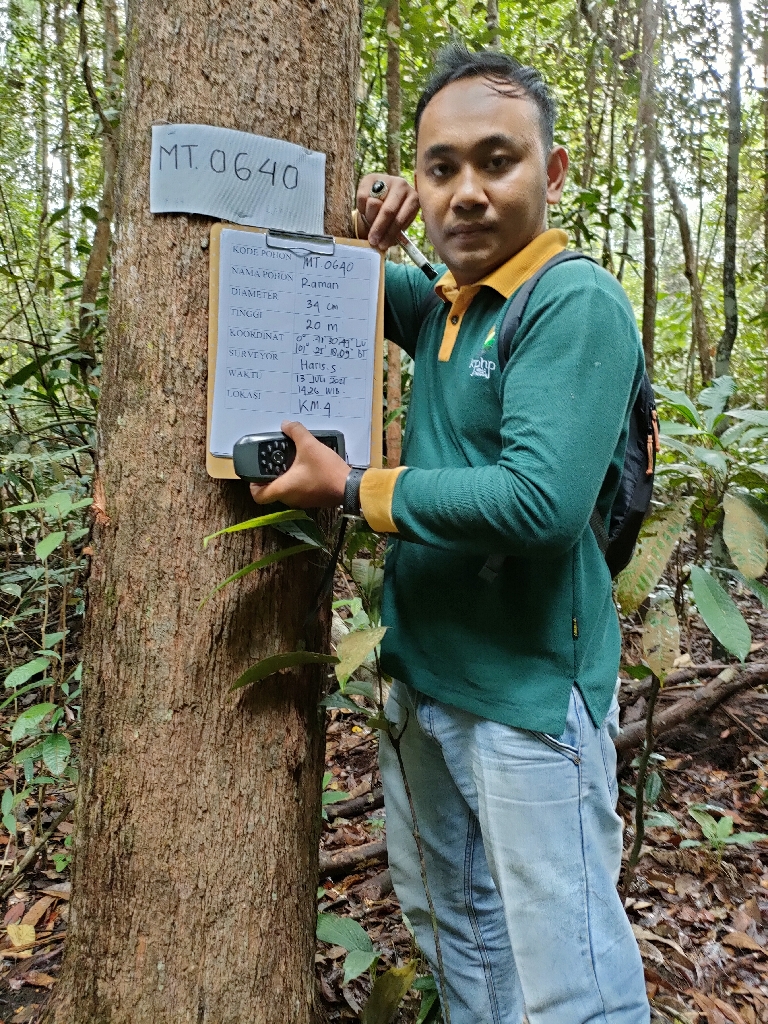 MT. 0640
KODE POHON MT 0640
NAMA POHON Raman
DIAMETER 34 cm
TINGGI 20 m
KOORDINAT
101° 21' 18,09" BT
SURVEYOR Haris. S
WAKTU 13 JULI
14:26 WIB.
LOKASI KM. 4